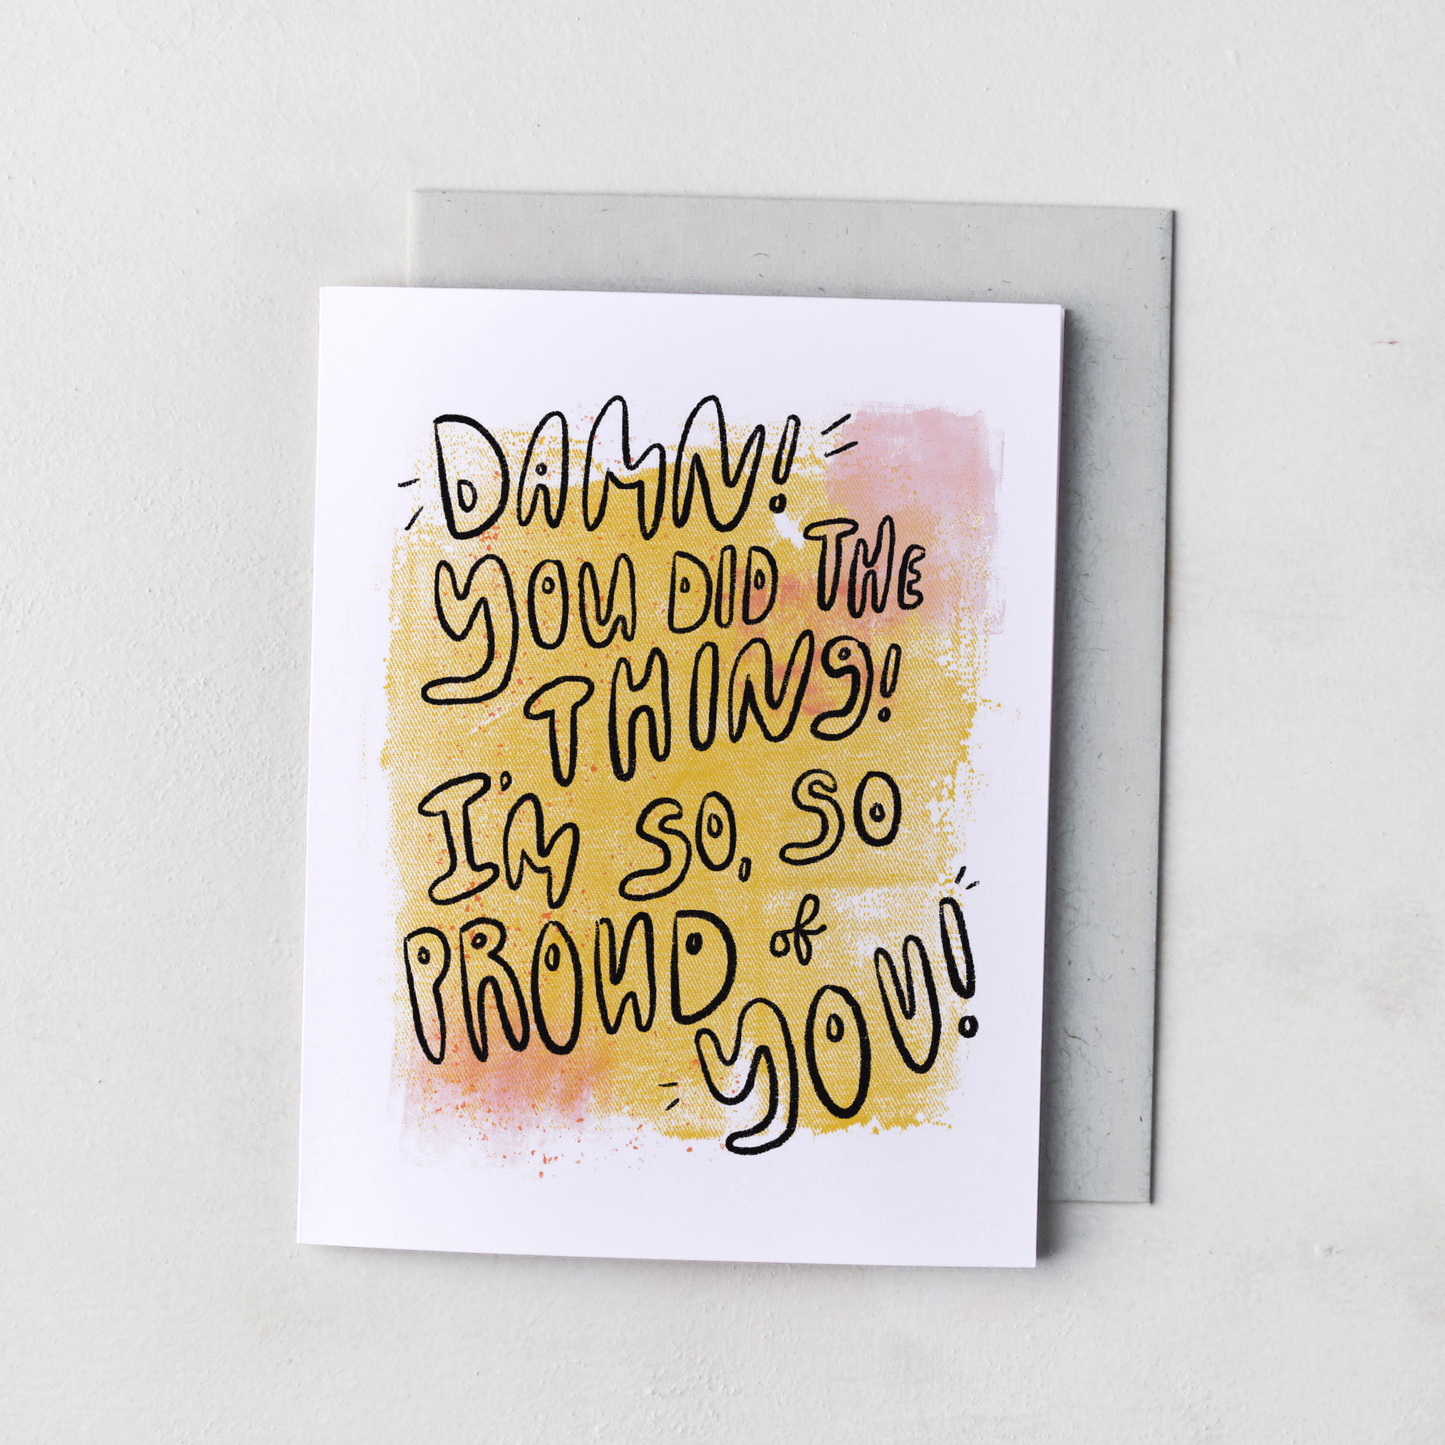 DAMN!
YOU DID THE
THING!
I'M SO, SO
PROUD of
YOU!